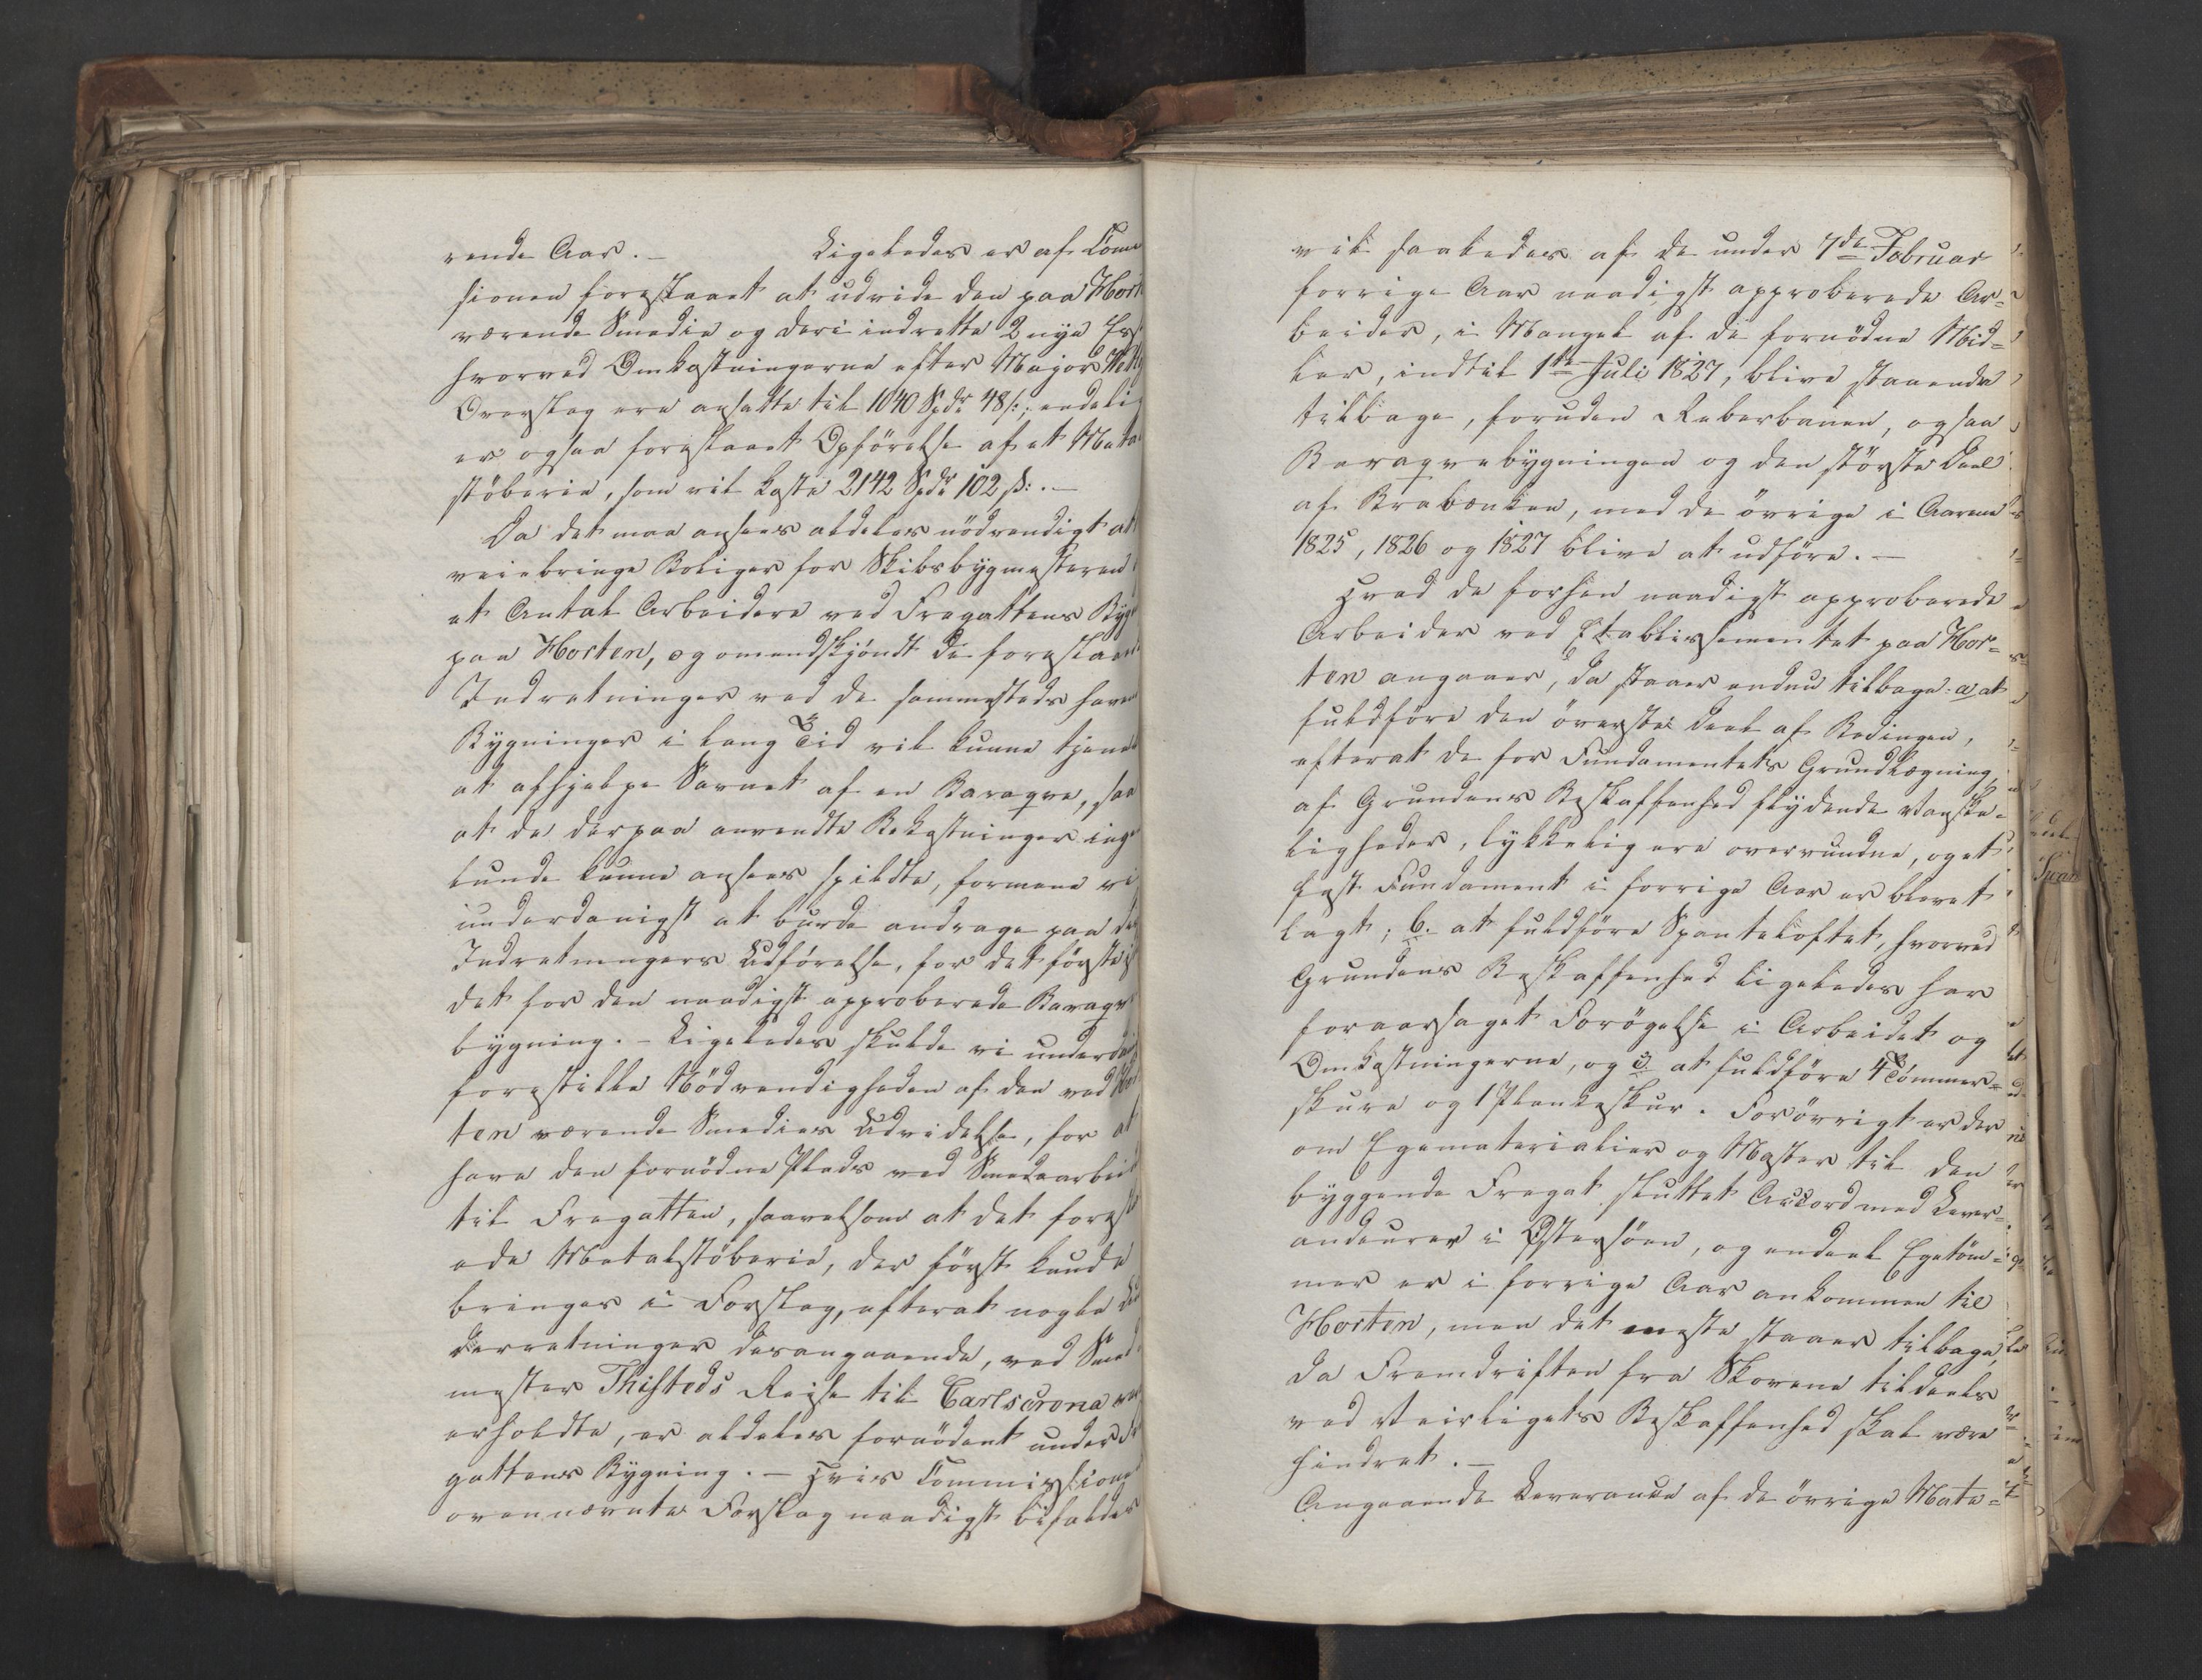 rende Aar. — Ligeledes er af Comi
sionen foreslaaet at udvide den paa Hort
værende Smedie og deri indrette 2 nye
hvorved Omkostningerne efter Major
Overslag ere ansatte til 1040 Spdr 48 s:; endeli
er ogsaa foreslaaet Opförelse af et Meta
stöberie, som vil koste 2142 Spdr 102 s:. —
Da det maa ansees aldeles nödvendigt at
veiebringe Boliger for Skibsbygmesteren
et Antal Arbeidere ved Fregattens Byg
paa Horten, og omendskjöndt de foreslaaed
Indretninger ved de sammesteds haven
Bygninger i lang Tid vil kunne tjene
at afhjelpe Savnet af en Baraqve, saa
at de derpaa anvendte Bekostninger inge
lunde kunne ansees spildte, formene vi
underdanigst at burde andrage paa de
Indretningers Udförelse, for det förste i
det for den naadigst approberede Baraqve
bygning. — Ligeledes skulde vi underdan
forestille Nödvendigheden af den ved Hor
ten værende Smedies Udvidelse, for at
have den fornödne Plads ved Smedearbeid
til Fregatten, saavelsom at det foresla
ede Metalstöberie, der först kunde
bringes i Forslag, efterat nogle
derretninger desangaaende, ved Smed
mester Thisteds Reise til Carlscrona var
erholdte, er aldeles fornödent under Fre
gattens Bygning. — Hvis Commissione
ovennævnte Forslag naadigst bifaldes
vil saaledes af de under 7de Februar
forrige Aar naadigst approberede Ar=
beider, i Mangel af de fornödne Mid=
ler, indtil 1te Juli 1827, blive staaende
tilbage, foruden Reberbanen, ogsaa
Baraqvebygningen og den störste Deel
af Krabænken, med de övrige i Aarene
1825, 1826 og 1827 blive at udföre. —
Hvad de forhen naadigst approberede
Arbeider ved Etablissementet paa Hor=
ten angaaer, da staaer endnu tilbage: a, at
fuldföre den överste Deel af Bedingen,
efterat de for Fundamentets Grundlægning,
af Grundens Beskaffenhed flydende Vanske=
ligheder, lykkelig ere overvundne, og et
fast Fundament i forrige Aar er blevet
lagt; b. at fuldföre Spanteloftet, hvorved
Grundens Beskaffenhed ligeledes har
foraarsaget Forögelse i Arbeidet og
Omkostningerne, og c. at fuldföre 4 Tömmer=
skure og 1 Plankeskur. Forövrigt er der
om Egematerialier og Master til den
byggende Fregat sluttet Accord med Lever=
andeurer i Östersöen, og endeel Egetöm=
mer er i forrige Aar ankommen til
Horten, men det meste staaer tilbage,
da Fremdriften fra Skovene tildeels
ved Veirligets Beskaffenhed skal være
hindret. —
Angaaende Leverance af de övrige Mate=